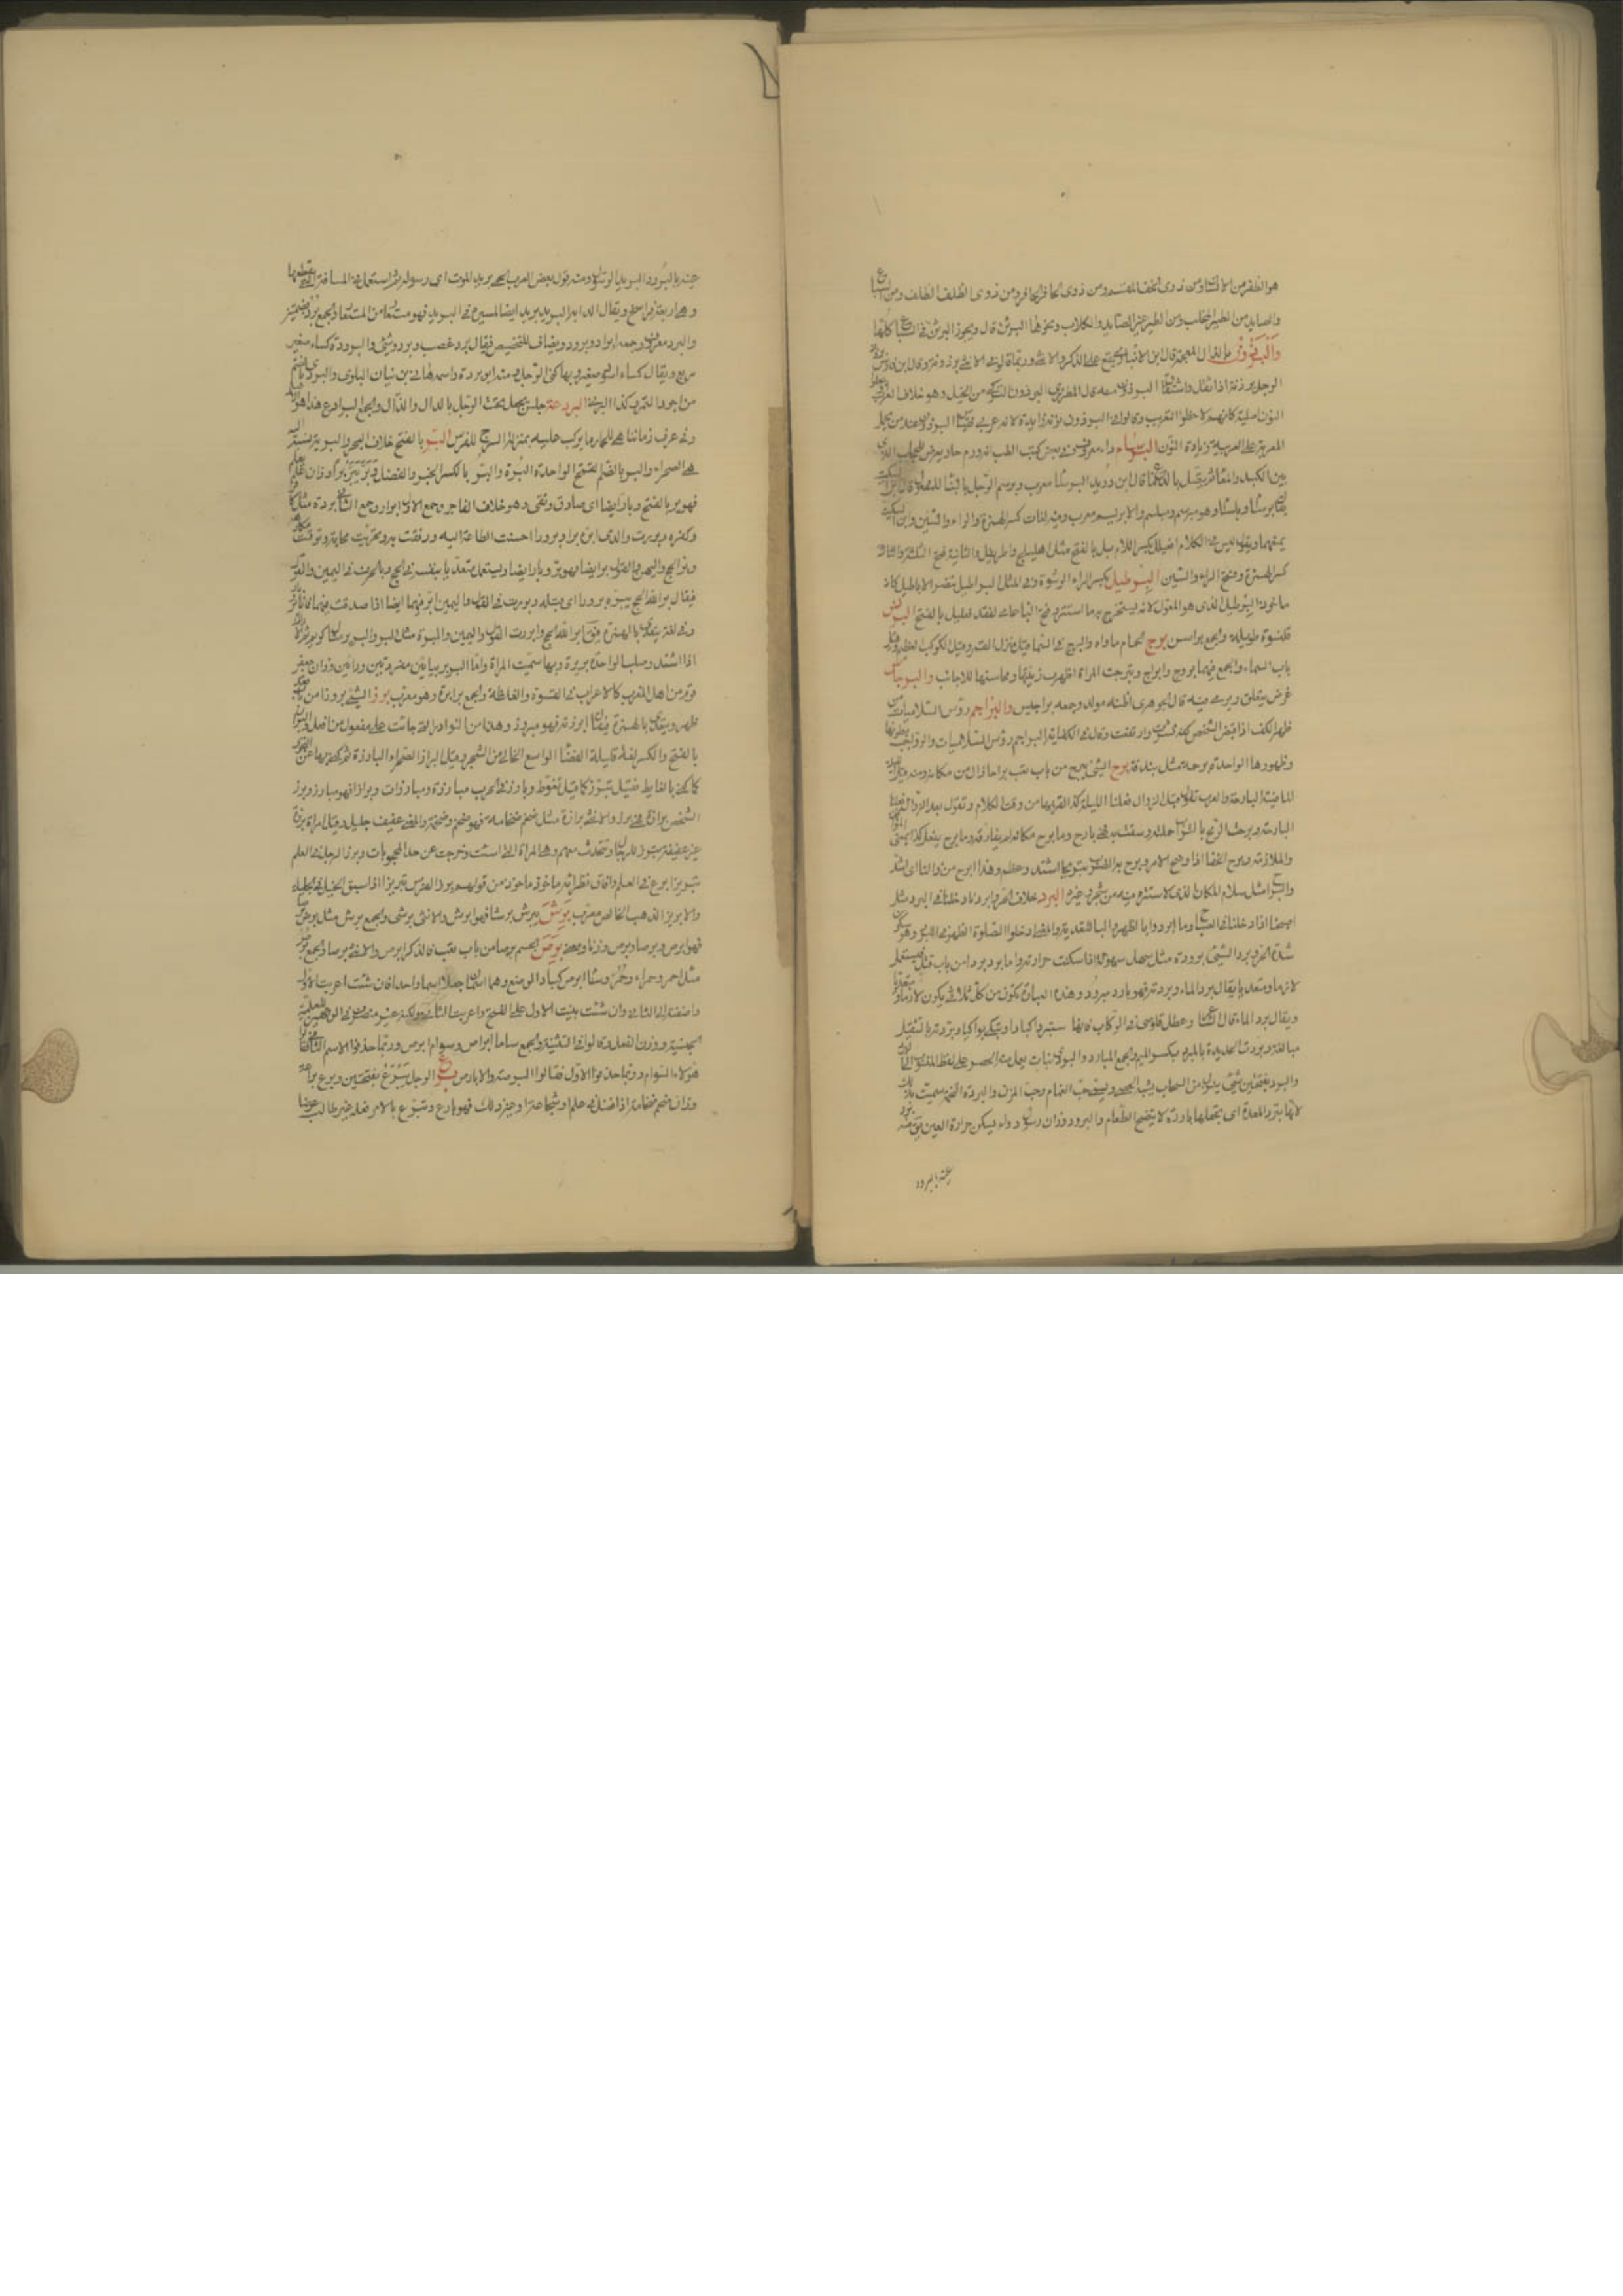 هو الظفر من الانسان ومن ذوى الخف المنسم ومن ذوى الحافر الحافر ومن ذوى الظلف الظلف ومن السباع
والصايد من الطير المخلب ومن الطير غير الصايد والكلاب ونحوها البرثن قال ويجوز البرثن فى السباع كلها
والبرذون بالذال المعجمة قال ابن الانبارى يقع على الذكر والانثى وربما قالوا فى الانثى برذونة وقال ابن فارس برذن
الرجل برذنة اذا ثقل واشتقاق البرذون منه قال المطرزى البرذون التركى من الخيل وهو خلاف العراب وجعلوا
النون اصلية كانهم لاحظوا التعريب وقالوا فى البرذون نونه زايدة لانه عربى فقياس البرذون عند من يحمل
المعربة على العربية زيادة النون البرسام داء معروف وفى بعض كتب الطب انه ورم حار يعرض للحجاب الذى
بين الكبد والمعا ثم يتصل بالدماغ قال ابن دريد البرسام معرب وبرسم الرجل بالبناء للمفعول قال ابن السكيت
يقال برسام وبلسام وهو مبرسم ومبلسم والابريسم معرب وفيه لغات كسر الهمزة والراء والسين وابن السكيت
يمنعها ويقول ليس فى الكلام افعيلل بكسر اللام بل بالفتح مثل اهليلج واطريفل والثانية فتح الثلاثة والثالثة
كسر الهمزة وفتح الراء والسين البرطيل بكسر الراء الرشوة وفى المثل البراطيل تنصر الاباطيل كانه
ماخوذ من البرطيل الذى هو المعول لانه يستخرج به ما استتر وفتح الباء عامى لفقد فعليل بالفتح البرنس
قلنسوة طويلة والجمع برانس برج الحمام ماواه والبرج فى السماء قيل منزل القمر وقيل الكوكب العظيم وقيل
باب السماء والجمع فيهما بروج وابراج وتبرجت المراة اظهرت زينتها ومحاسنها للاجانب والبرجاس
غرض يتعلق ويرمى فيه قال الجوهرى اظنه مولد وجمعه براجيس والبراجم رؤس السلاميات من
ظهر الكف اذا قبض الشخص كفه نشزت وارتفعت وقال فى الكفاية البراجم رؤس السلاميات والرواجب بطونها
وظهورها الواحدة برجمة مثل بندقة برح الشى يبرح من باب تعب براحا زال من مكانه ومنه قيل لليلة
الماضية البارحة والعرب تقول قبل الزوال فعلنا الليلة كذا لقربها من وقت الكلام وتقول بعد الزوال فعلنا
البارحة وبرحت الريح بالتراب حملته وسفت به فهى بارح وما برح مكانه لم يفارقه وما برح يفعل كذا بمعنى المواظبة
والملازمة وبرح الخفا اذا وضح الامر وبرح به الضرب تبريحا اشتد وعظم وهذا ابرح من ذلك اى اشد
والبراح مثل سلام المكان الذى لا سترة فيه من شجر وغيره البرد خلاف الحر وابردنا دخلنا فى البرد مثل
اصبحنا اذا دخلنا فى الصباح واما ابردوا بالظهر فالباء للتعدية والمعنى ادخلوا الصلوة الظهر فى البرد وهو سكون
شدة الحر وبرد الشى برودة مثل سهل سهولة اذا سكنت حرارته واما برد بردا من باب قتل فيستعمل
لازما ومتعديا يقال برد الماء وبردته فهو بارد ومبرود وهذه العبارة تكون من كل ثلاثى يكون لازما ومتعديا
ويقال برد الماء قال الشاعر وعطل قلوصى فى الركاب فانها ستبرد اكبادا وتبكى بواكيا وبردته بالتثقيل
مبالغة وبردت الحديدة بالمبرد بكسر الميم والجمع المبارد والبردى نبات يعمل منه الحصر على لفظ المنسوب الى البرد
والبرد بفتحتين شى ينزل من السحاب يشبه الحصى ويسمى حب الغمام وحب المزن والبردة التخمة سميت بذلك
لانها تبرد المعدة اى تجعلها باردة لا ينضج الطعام والبرود وزان رسول دواء يسكن حرارة العين يق منه برد
عينه بالبرود
عينه بالبرود والبريد الرسول ومنه قول بعض العرب الحمى بريد الموت اى رسوله ثم استعمل فى المسافة التى يقطعها
وهى اربعة فراسخ ويقال لدابة البريد بريد ايضا لسيره فى البريد فهو مستعار من المستعار والجمع برد بضمتين
والبرد معروف وجمعه ابراد وبرود ويضاف للتخصيص فيقال برد عصب وبرد وشى والبردة كساء صغير
مربع ويقال كساء اسود صغير وبها كنى الرجل ومنه ابو بردة واسمه هانى بن نيار البلوى والبردى بالضم
من اجود التمر البرذعة حلس يجعل تحت الرحل بالدال والذال والجمع البراذع هذا هو الاصل
وفى عرف زماننا هى للحمار ما يركب عليه بمنزلة السرج للفرس البر بالفتح خلاف البحر والبرية نسبة اليه
هى الصحراء والبر بالضم القمح الواحدة البرة والبر بالكسر الخير والفضل وبر يبر برا وزان علم يعلم
فهو بر بالفتح وبار ايضا اى صادق وتقى وهو خلاف الفاجر وجمع الاول ابرار وجمع الثانى بررة مثل كافر
وكفرة وبررت والدى ابره برا وبرورا احسنت الطاعة اليه ورفقت به وتحريت محابه وتوقيت مكارهه
وبر الحج واليمين والقول برا ايضا فهو بر وبار ايضا ويستعمل متعديا بنفسه فى الحج وبالحرف فى اليمين والقول
فيقال بر الله الحج يبره برورا اى قبله وبررت فى القول واليمين ابر فيهما ايضا اذا صدقت فيهما فانا بر وبار
وفى لغة يتعدى بالهمزة فيق ابر الله الحج وابررت القول واليمين والمبرة مثل البر والبرير ثمر الاراك
اذا اشتد وصلب الواحدة بريرة وبها سميت المراة واما البربر ببائين موحدتين ورائين وزان جعفر
قوم من اهل المغرب كالاعراب فى القسوة والغلظة والجمع برابرة وهو معرب برز الشى بروزا من باب قعد
ظهر ويتعدى بالهمزة فيقال ابرزته فهو مبروز وهذا من النوادر التى جائت على مفعول من افعل والبراز
بالفتح والكسر لغة قليلة الفضاء الواسع الخالى من الشجر وقيل البراز الصحراء البارزة ثم كنى به عن النجو
كما كنى بالغايط فقيل تبرز كما قيل تغوط وبارز فى الحرب مبارزة ومبارزات وبرازا فهو مبارز وبرز
الشخص برازة فهو برز والانثى برزة مثل ضخم ضخامة فهو ضخم وضخمة والمعنى عفيف جليل وقيل امراة برزة
عفيفة تبرز للرجال وتتحدث معهم وهى المراة التى اسنت وخرجت عن حد المحجوبات وبرز الرجل فى العلم
تبريزا برع فى العلم وفاق نظرائه ماخوذ من قولهم برز الفرس تبريزا اذا سبق الخيل فى الحلبة
والابريز الذهب الخالص معرب برش يبرش برشا فهو ابرش والانثى برشى والجمع برش مثل برص
فهو ابرص وبرصا وبرص وزنا ومعنى برص الجسم برصا من باب تعب فالذكر ابرص والانثى برصا والجمع برص
مثل احمر وحمراء وحمر وسام ابرص كبار الوزغ وهما اسمان جعلا اسما واحدا فان شئت اعربت الاول
واضفته الى الثانى وان شئت بنيت الاول على الفتح واعربت الثانى ولكنه غير منصرف فى الوجهين للعلمية
الجنسية ووزن الفعل وقالوا فى التثنية والجمع ساما ابرص وسوام ابرص وربما حذفوا الاسم الثانى فقالوا
هؤلاء السوام وربما حذفوا الاول فقالوا البرصة والابارص برع الرجل يبرع بفتحتين وبرع براعة
وزان ضخم ضخامة اذا فضل فى علم او شجاعة او غير ذلك فهو بارع وتبرع بالامر فعله غير طالب عوضا